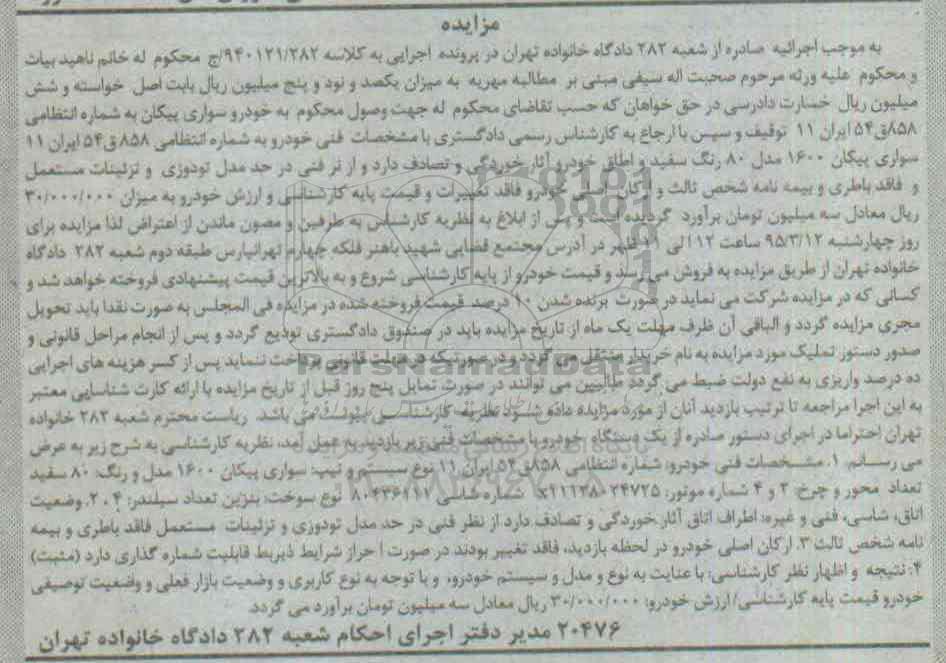 مزایده
به موجب اجرائیه صادره از شعبه ۲۸۲ دادگاه خانواده تهران در پرونده اجرایی به کلاسه ۹۴۰۱۲۱/۲۸۲/ج محکوم له خانم ناهید بیات
و محکوم علیه ورثه مرحوم صحبت اله سیفی مبنی بر مطالبه مهریه به میزان یکصد و نود و پنج میلیون ریال بابت اصل خواسته و شش
میلیون ریال خسارت دادرسی در حق خواهان که حسب تقاضای محکوم له جهت وصول محکوم به خودرو سواری پیکان به شماره انتظامی
۸۵۸ق۵۴ ایران ۱۱ توقیف و سپس با ارجاع به کارشناس رسمی دادگستری با مشخصات فنی خودرو به شماره انتظامی ۸۵۸ ق۵۴ ایران ۱۱
سواری پیکان ۱۶۰۰ مدل ۸۰ رنگ سفید و اطاق خودرو آثار خوردگی و تصادف دارد و از نر فنی در حد مدل تودوزی و تزئینات مستعمل
و فاقد باطری و بیمه نامه شخص ثالث و ارکان اصلی خودرو فاقد تغییرات و قیمت پایه کارشناسی و ارزش خودرو به میزان ۳۰/۰۰۰/۰۰۰
ریال معادل سه میلیون تومان برآورد گردیده است و پس از ابلاغ به نظریه کارشناس به طرفین و مصون ماندن از اعتراض لذا مزایده برای
روز چهارشنبه ۹۵/۳/۱۲ ساعت ۱۱۲لی ۱۱ ظهر در آدرس مجتمع قضایی شهید باهنر فلکه چهارم تهرانپارس طبقه دوم شعبه ۲۸۲ دادگاه
خانواده تهران از طریق مزایده به فروش می رسد و قیمت خودرو از پایه کارشناسی شروع و به بالاترین قیمت پیشنهادی فروخته خواهد شد و
کسانی که در مزایده شرکت می نماید در صورت برنده شدن ۱۰ درصد قیمت فروخته شده در مزایده فی المجلس به صورت نقدا باید تحویل
مجری مزایده گردد و الباقی آن ظرف مهلت یک ماه از تاریخ مزایده باید در صندوق دادگستری تودیع گردد و پس از انجام مراحل قانونی و
صدور دستور تملیک مورد مزایده به نام خریدار منتقل می گردد و در صورتیکه در مهلت قانونی پرداخت ننماید پس از کسر هزینه های اجرایی
ده درصد واریزی به نفع دولت ضبط می گردد طالبین می توانند در صورت تمایل پنج روز قبل از تاریخ مزایده با ارائه کارت شناسایی معتبر
به این اجرا مراجعه تا ترتیب بازدید آنان از مورد مزایده داده شود نظریه کارشناسی پیوست می باشد. ریاست محترم شعبه ۲۸۲ خانواده
تهران احتراما در اجرای دستور صادره از یک دستگاه خودرو با مشخصات فنی زیر بازدید به عمل آمد، نظریه کارشناسی به شرح زیر به عرض
می رسانم. ۱. مشخصات فنی خودرو: شماره انتظامی ۸۵۸ق۵۴ ایران ۱۱ نوع سیستم و تیپ: سواری پیکان ۱۶۰۰ مدل و رنگ: ۸۰ سفید
تعداد محور و چرخ: ۲ و ۴ شماره موتور: شماره شاسی نوع سوخت: بنزین تعداد سیلندر: ۴ ۲. وضعیت
اتاق، شاسی، فنی و غیره: اطراف اتاق آثار خوردگی و تصادف دارد از نظر فنی در حد مدل تودوزی و تزئینات مستعمل فاقد باطری و بیمه
نامه شخص ثالث ۳. ارکان اصلی خودرو در لحظه بازدید، فاقد تغییر بودند در صورت احراز شرایط ذیربط قابلیت شماره گذاری دارد (مثبت)
۴: نتیجه و اظهار نظر کارشناسی: با عنایت به نوع و مدل و سیستم خودرو، و با توجه به نوع کاربری و وضعیت بازار فعلی و وضعیت توصیفی
خودرو قیمت پایه کارشناسی/ ارزش خودرو: ۳۰/۰۰۰/۰۰۰ ریال معادل سه میلیون تومان برآورد می گردد.
۲۰۴۷۶ مدیر دفتر اجرای احکام شعبه ۲۸۲ دادگاه خانواده تهران
ParsNamadData